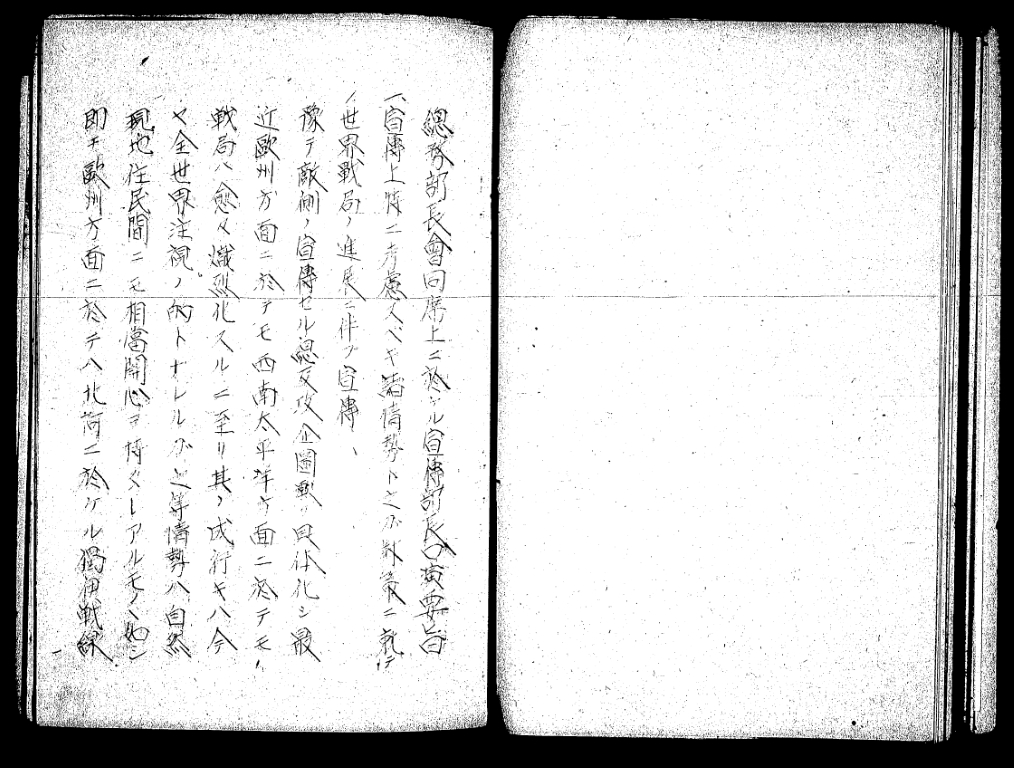 總務部長會同席上ニ於ケル宣傳部長口演要旨
一、宣傳上特ニ考慮スベキ諸情勢ト之ガ對策ニ就テ
ノ世界戰局ノ進展ニ伴フ宣傳、
豫テ敵側ノ宣傳セル總反攻企圖ハ具体化シ最
近歐州方面ニ於テモ西南太平洋方面ニ於テモ、
戰局ハ愈々熾烈化スルニ至リ其ノ成行キハ今
ヤ全世界注視ノ的トナレルガ之等情勢ハ自然
現地住民間ニモ相當関心ヲ博シアルモノノ如シ
即チ歐州方面ニ於テハ北阿ニ於ケル獨伊戰線